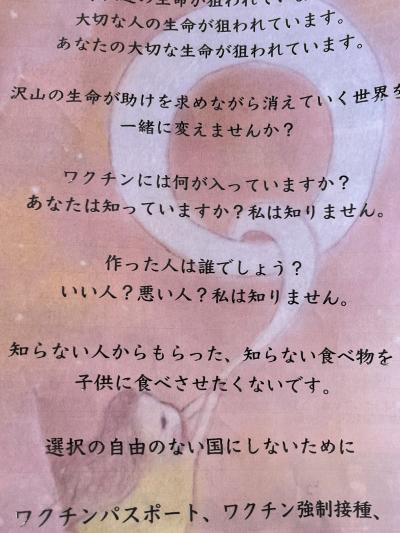 の生命が狙われています。
大切な人の生命が狙われています。
あなたの大切な生命が狙われています。
沢山の生命が助けを求めながら消えていく世界を
一緒に変えませんか？
ワクチンには何が入っていますか？
あなたは知っていますか？私は知りません。
作った人は誰でしょう？
いい人？悪い人？私は知りません。
知らない人からもらった、知らない食べ物を
子供に食べさせたくないです。
選択の自由のない国にしないために
ワクチンパスポート、ワクチン強制接種、